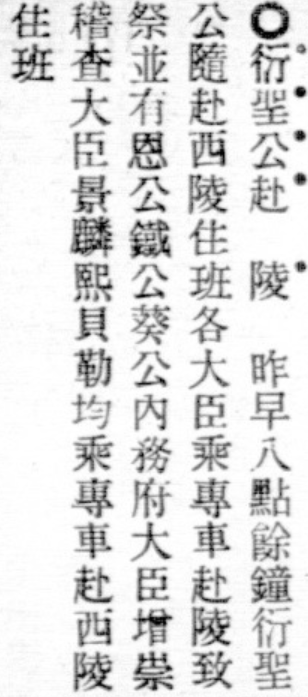 ◯衍聖公赴　陵　昨早八點餘鐘衍聖
公隨赴西陵住班各大臣乘專車赴陵致
祭並有恩公鐵公葵公內務府大臣增崇
稽查大臣景麟熙貝勒均乘專車赴西陵
住班